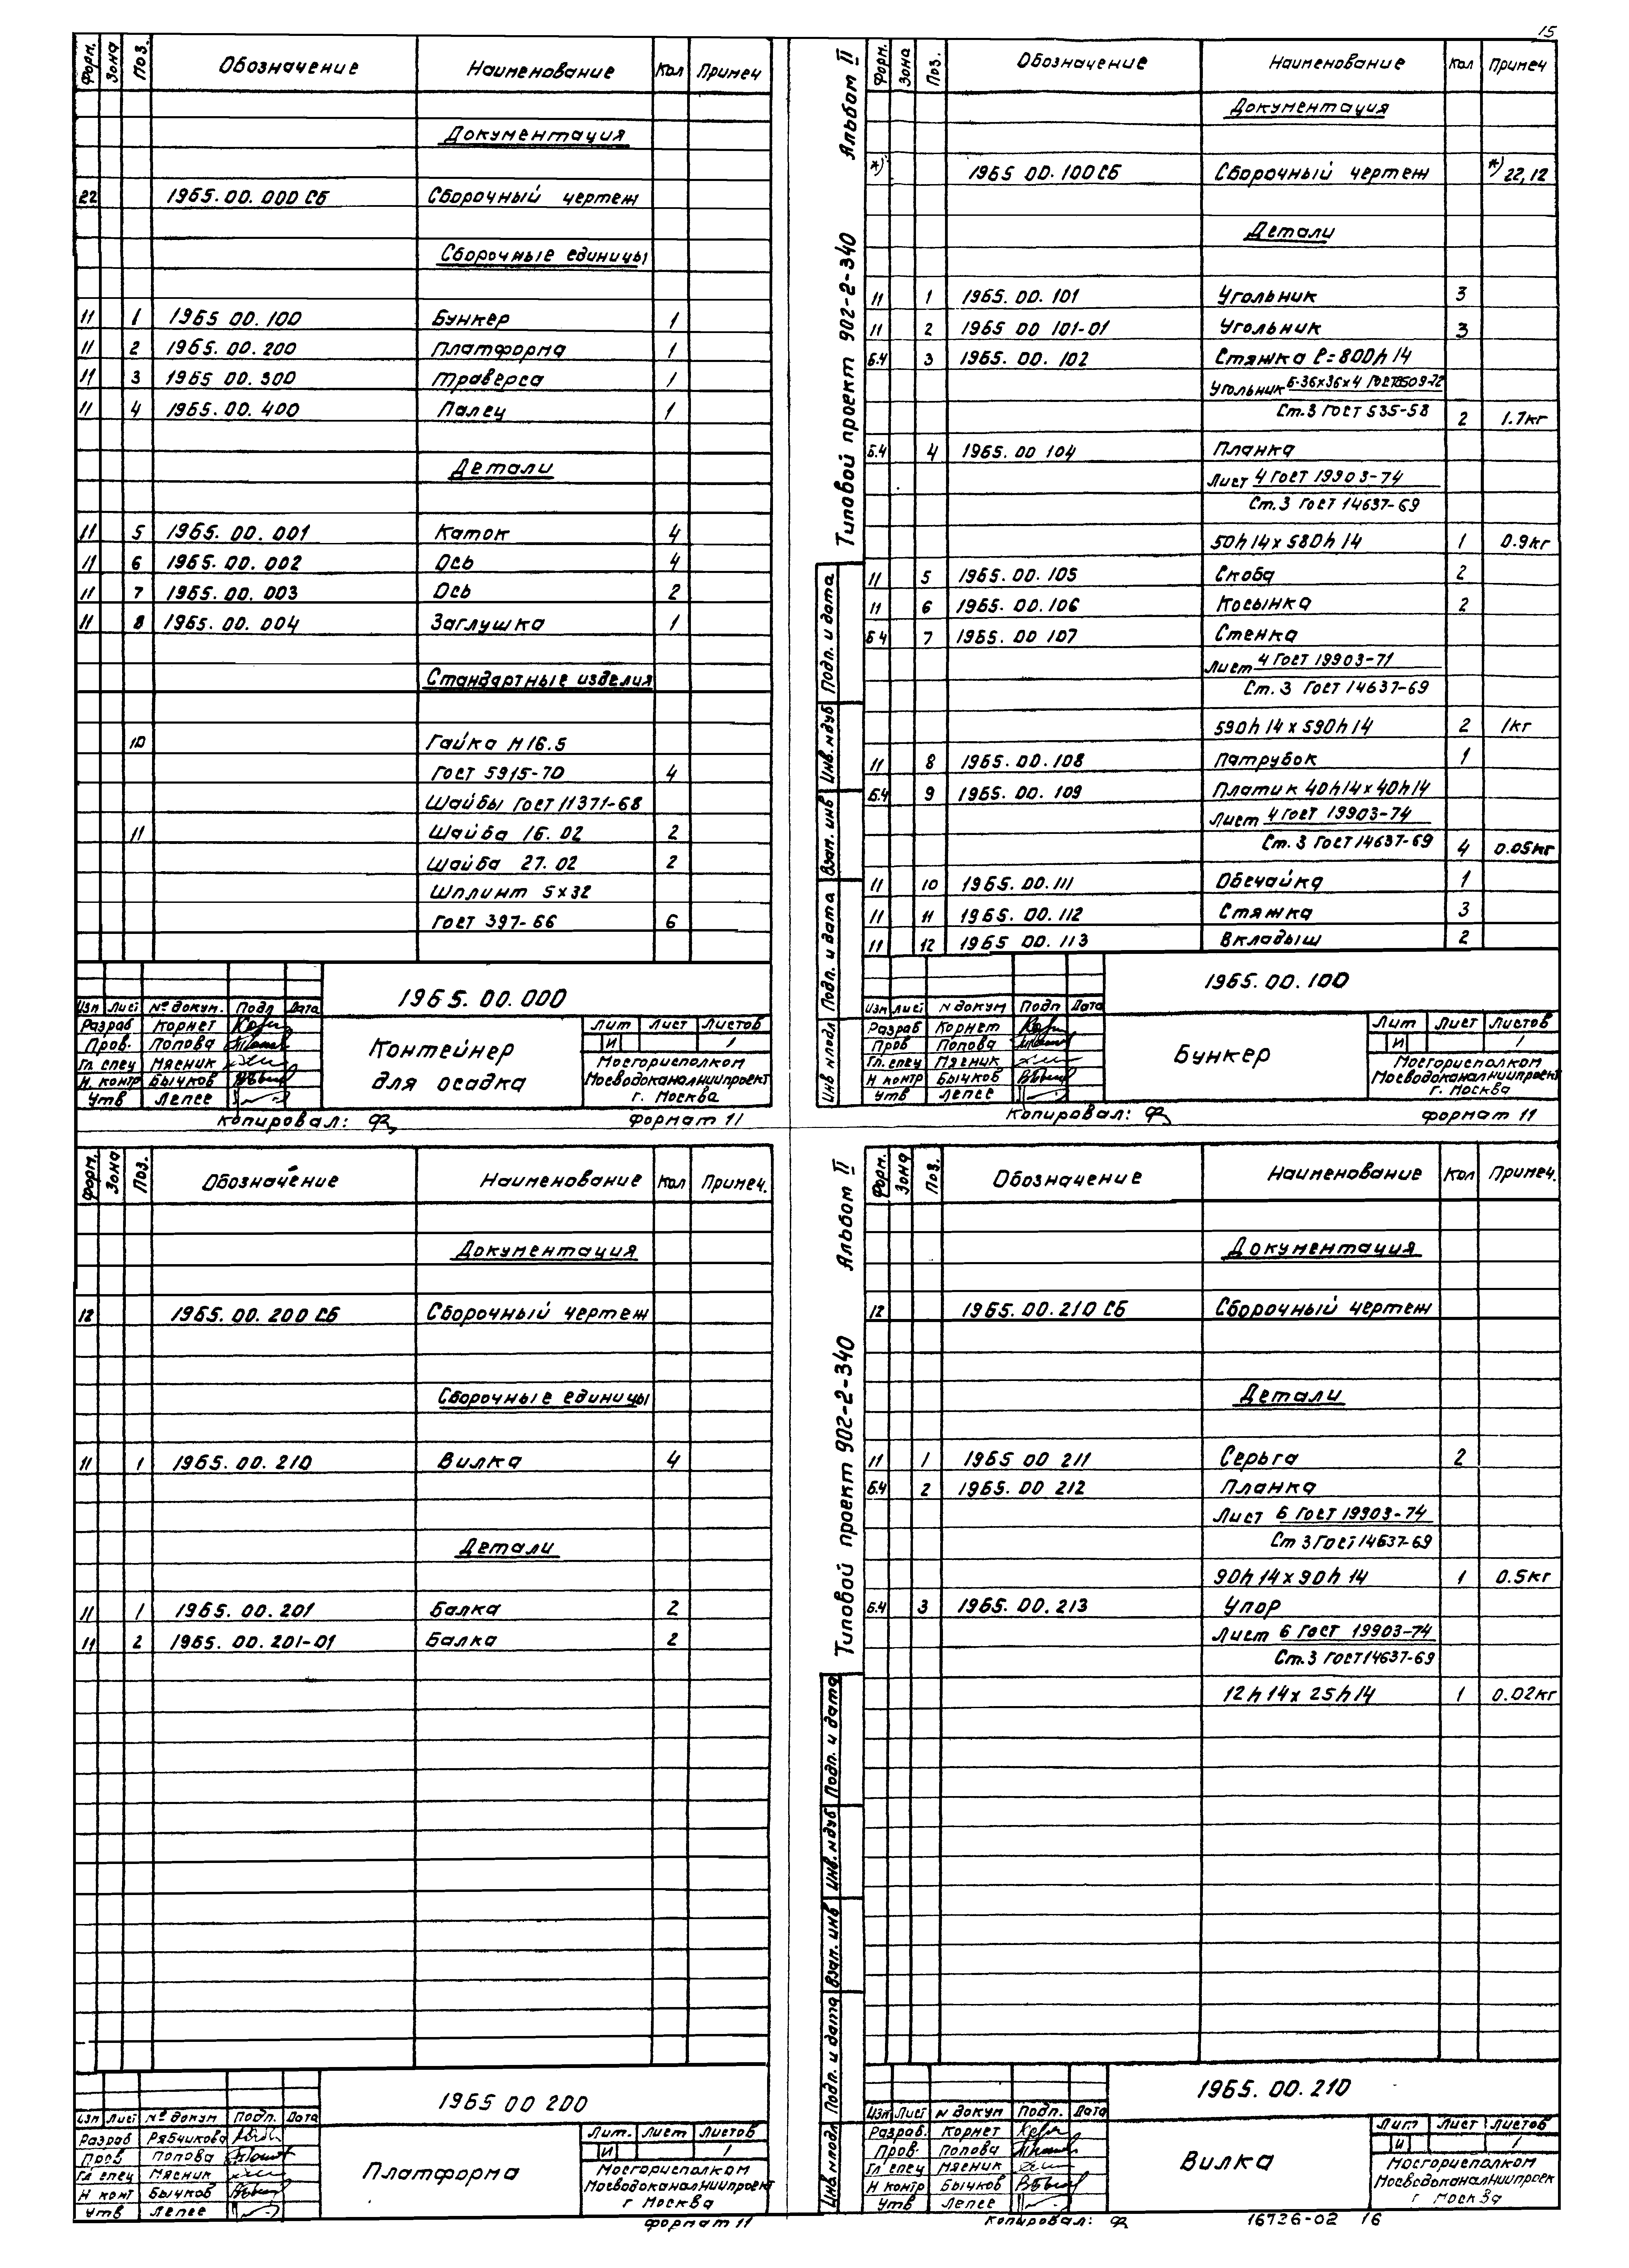 15
Форм. Зона Поз. Обозначение Наименование Кол Примеч
Документация
22 1965.00.000 СБ Сборочный чертеж
Сборочные единицы
11 1 1965 00.100 Бункер 1
11 2 1965.00.200 Платформа 1
11 3 1965 00.300 Траверса 1
11 4 1965.00.400 Палец 1
Детали
11 5 1965.00.001 Каток 4
11 6 1965.00.002 Ось 4
11 7 1965.00.003 Ось 2
11 8 1965.00.004 Заглушка 1
Стандартные изделия
10 Гайка М16.5
Гост 5915-70 4
Шайбы Гост 11371-68
11 Шайба 16.02 2
Шайба 27.02 2
Шплинт 5х32
Гост 397-66 6
1965.00.000
Изм Лист № докум. Подп Дата
Разраб Корнет
Пров. Попова
Гл. спец Мясник
Н. контр Бычков
Утв Лепее
Контейнер
для осадка
Лит Лист Листов
И 1
Мосгорисполком
Мосводоканалниипроект
г. Москва
Копировал:
Формат 11
Альбом II
Типовой проект 902-2-340
Подп. и дата
Инв. № дуб
Взам. инв
Подп. и дата
Инв № подл
Форм. Зона Поз. Обозначение Наименование Кол Примеч
Документация
*) 1965 00.100 СБ Сборочный чертеж *) 22,12
Детали
11 1 1965.00.101 Угольник 3
11 2 1965 00 101-01 Угольник 3
Б.Ч 3 1965.00.102 Стяжка ℓ=800h14
Угольник Б-36х36х4 Гост 8509-72
Ст.3 Гост 535-58 2 1.7кг
Б.Ч 4 1965.00 104 Планка
Лист 4 Гост 19903-74
Ст.3 Гост 14637-69
50h14х580h14 1 0.9кг
11 5 1965.00.105 Скоба 2
11 6 1965.00.106 Косынка 2
БЧ 7 1965.00 107 Стенка
Лист 4 Гост 19903-71
Ст.3 Гост 14637-69
590h14х590h14 2 1кг
11 8 1965.00.108 Патрубок 1
Б.Ч 9 1965.00.109 Платик 40h14х40h14
Лист 4 Гост 19903-74
Ст.3 Гост 14637-69 4 0.05кг
11 10 1965.00.111 Обечайка 1
11 11 1965.00.112 Стяжка 3
11 12 1965 00.113 Вкладыш 2
1965.00.100
Изм Лист N докум Подп Дата
Разраб Корнет
Пров Попова
Гл. спец Мясник
Н контр Бычков
Утв Лепее
Бункер
Лит Лист Листов
И 1
Мосгорисполком
Мосводоканалниипроект
г. Москва
Копировал:
Формат 11
Форм. Зона Поз. Обозначение Наименование Кол Примеч.
Документация
12 1965.00.200 СБ Сборочный чертеж
Сборочные единицы
11 1 1965.00.210 Вилка 4
Детали
11 1 1965.00.201 Балка 2
11 2 1965.00.201-01 Балка 2
1965 00 200
Изм Лист № докум Подп. Дата
Разраб Рябчикова
Пров Попова
Гл спец Мясник
Н конт Бычков
Утв Лепее
Платформа
Лит. Лист Листов
И 1
Мосгорисполком
Мосводоканалниипроект
г Москва
Формат 11
Альбом II
Типовой проект 902-2-340
Подп. и дата
Инв. № дуб
Взам. инв
Подп. и дата
Инв. № подл
Форм. Зона Поз. Обозначение Наименование Кол Примеч.
Документация
12 1965.00.210 СБ Сборочный чертеж
Детали
11 1 1965 00 211 Серьга 2
Б.Ч 2 1965.00 212 Планка
Лист 6 Гост 19903-74
Ст 3 Гост 14637-69
90h14х90h14 1 0.5кг
Б.Ч 3 1965.00.213 Упор
Лист 6 Гост 19903-74
Ст.3 Гост 14637-69
12h14х25h14 1 0.02кг
1965.00.210
Изм Лист N докум Подп. Дата
Разраб. Корнет
Пров. Попова
Гл спец Мясник
Н контр Бычков
Утв Лепее
Вилка
Лит Лист Листов
И 1
Мосгорисполком
Мосводоканалниипроек
г Москва
Копировал:
16726-02 16